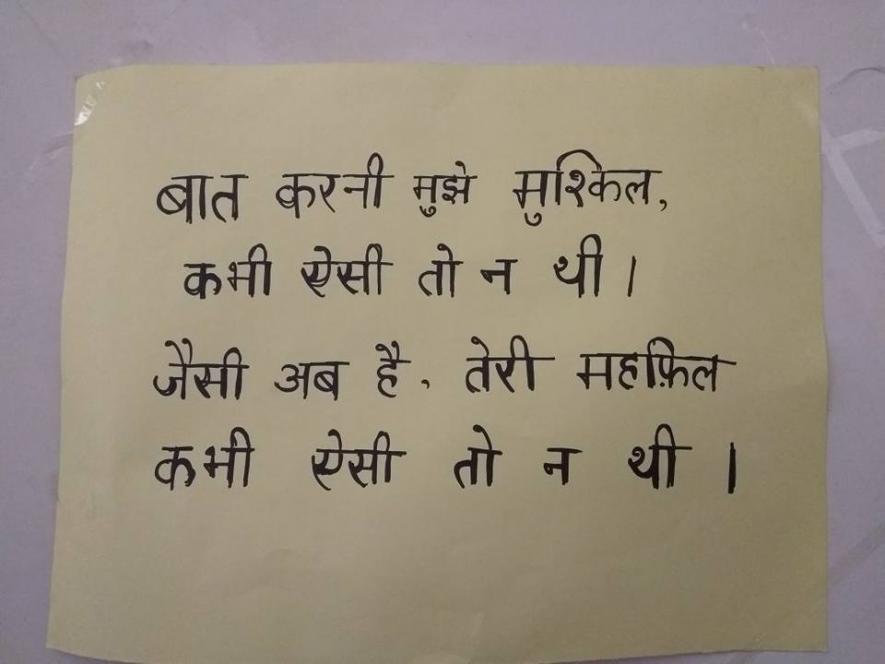 बात करनी मुझे मुश्किल,
कभी ऐसी तो न थी।
जैसी अब है, तेरी महफ़िल
कभी ऐसी तो न थी।